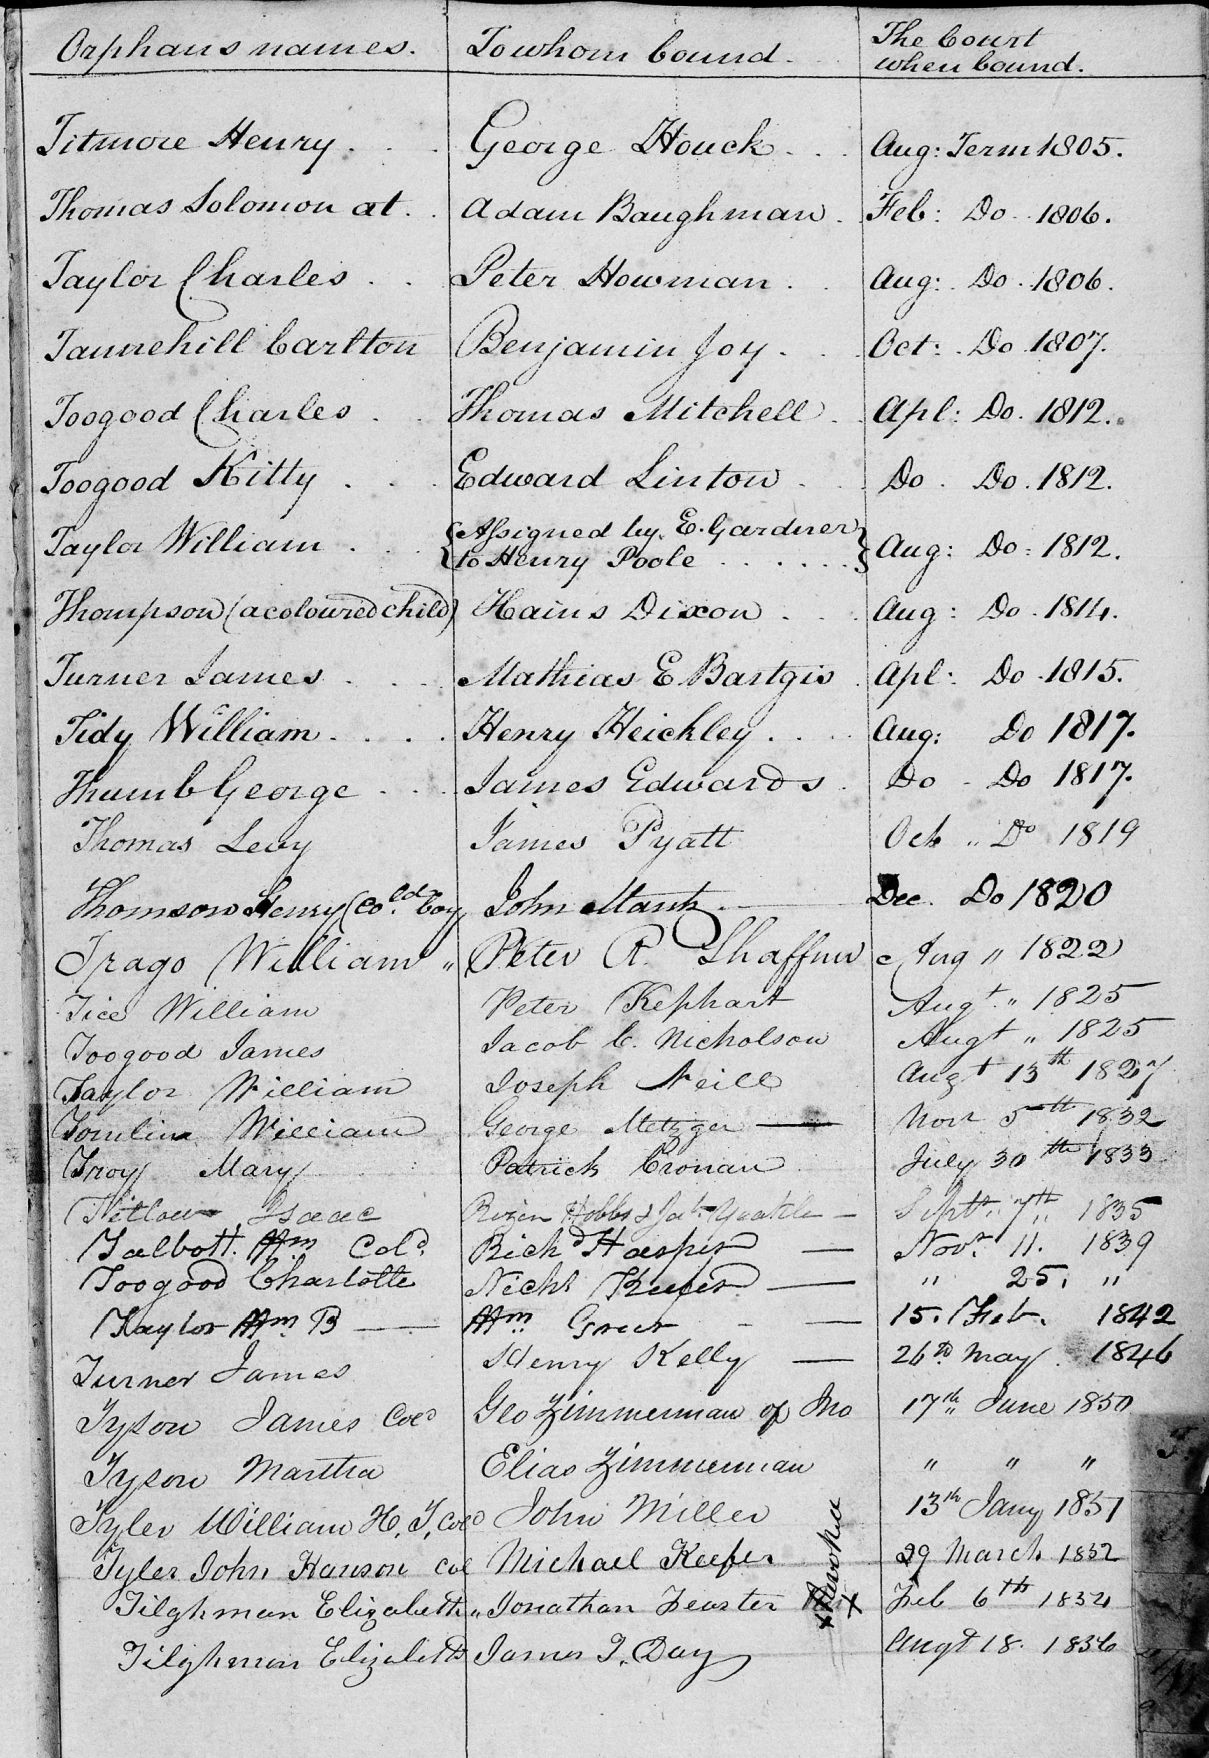 Orphans names. To whom bound. The Court when bound.
Titmore Henry . . . George Houck . . . Aug: Term 1805.
Thomas Solomon at . . Adam Baughman . Feb: Do 1806.
Taylor Charles . . Peter Howman . . Aug: Do 1806.
Tannehill Carlton Benjamin Joy . . . Oct: Do 1807.
Toogood Charles . . Thomas Mitchell . Apl: Do 1812.
Toogood Kitty . . . Edward Linton . . Do Do 1812.
Taylor William . . . {Assigned by E. Gardner to Henry Poole . . . . . .} Aug: Do 1812.
Thompson (a coloured child) Hains Dixon . . . Aug: Do 1814.
Turner James . . . Mathias E Bartgis . Apl: Do 1815.
Tidy William . . . . Henry Heickley . . . Aug: Do 1817.
Thumb George . . . James Edwards . Do Do 1817.
Thomas Levy James Pyatt Oct „ Do 1819
Thomson Henry (Cold. boy John Mantz Dec. Do 1820
Trago William „ Peter R. Shaffner Aug „ 1822
Tice William Peter Kephart Augt. „ 1825
Toogood James Jacob C. Nicholson Augt „ 1825
Taylor William Joseph Neill Augt 13th 1827
Tomlin William George Metzger — Novr 5th 1832
Troy Mary Patrick Cronan July 30th 1833
Titlow Isaac Rezin Hobbs & — Septr. 7th 1835
Talbott. Wm Cold. Richd Harper — Novr. 11. 1839
Toogood Charlotte Nichs Keefer — „ 25. „
Taylor Wm. B — Wm. Greer - — 15. Feb. 1842
Turner James Henry Kelly — 26th May 1846
Tyson James Cold Geo Zimmerman of Jno 17th June 1850
Tyson Martha Elias Zimmerman „ „ „
Tyler William H. T. Cold John Miller 13th Jany 1851
Tyler John Hanson Col Michael Keefer 29 March 1852
Tilghman Elizabeth „ Jonathan Feaster Feb 6th 1854
Tilghman Elizabeth James T. Day Augt 18. 1856